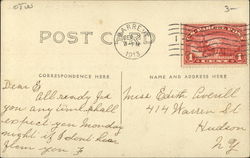 OTW
3-
POST CARD
WARREN
FEB 8
2-PM
1913
1
1
CORRESPONDENCE HERE
NAME AND ADDRESS HERE
Dear E
All ready for
you any time. shall
expect you Monday
night if I dont hear
from you
Miss Edith Coverill
414 Warren St
Hudson
N.Y.